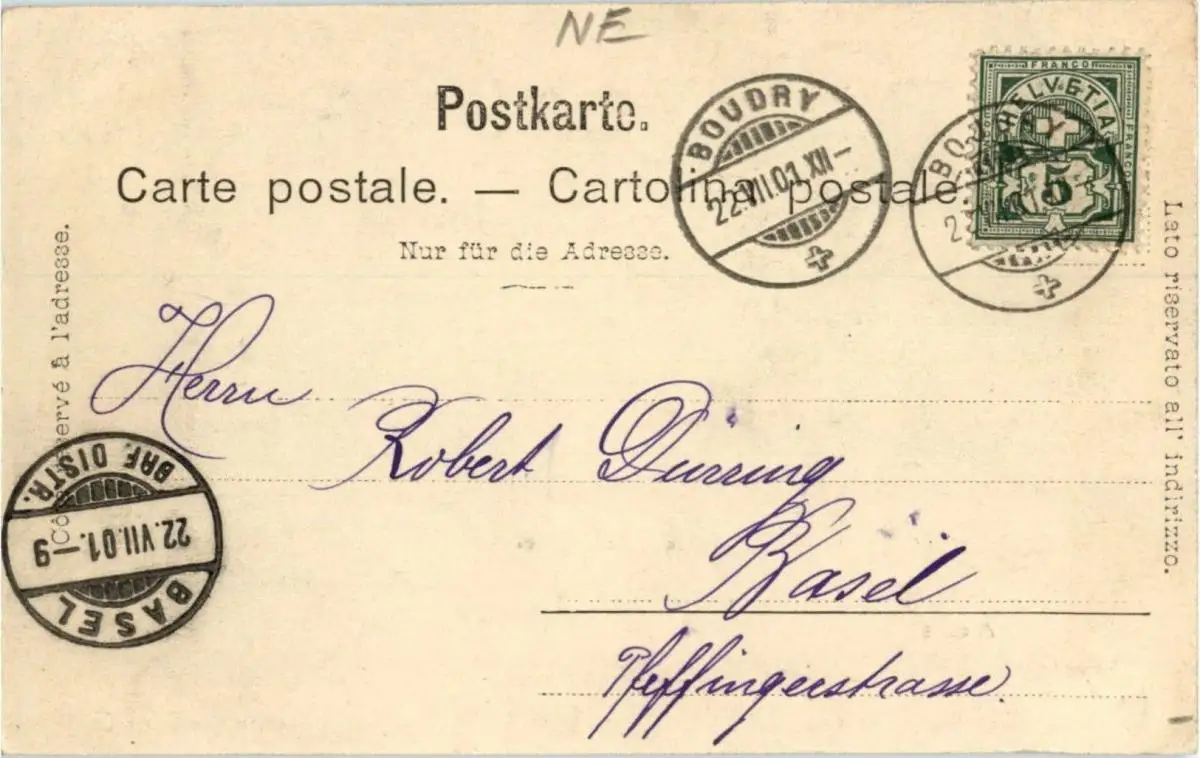 NE
Postkarte.
Carte postale. — Cartolina postale.
Nur für die Adresse.
BOUDRY
22.VII.01.XII–
BOUDRY
FRANCO
HELVETIA
FRANCO
FRANCO
5
Côté réservé à l'adresse.
Lato riservato all' indirizzo.
Herrn
Robert Dürring
Basel
Pfeffingerstrasse.
BASEL
22.VII.01.–9
BRF. DISTR.